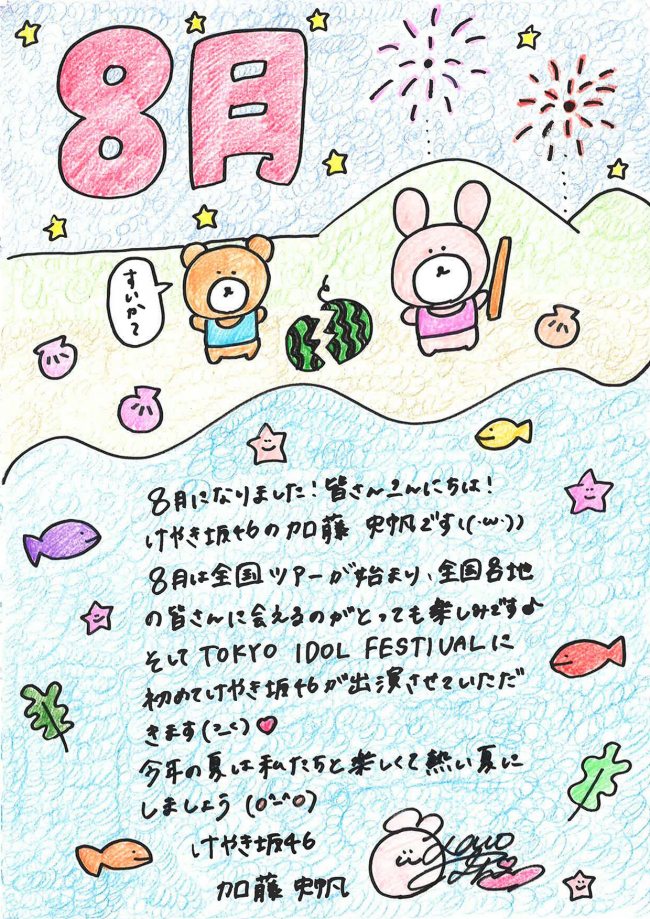 8月
すいか?
8月になりました!皆さんこんにちは!
けやき坂46の加藤 史帆です!((·ω·))
8月は全国ツアーが始まり、全国各地
の皆さんに会えるのがとっても楽しみです♪
そしてTOKYO IDOL FESTIVALに
初めてけやき坂46が出演させていただ
きます(>_<)♥
今年の夏は私たちと楽しくて熱い夏に
しましょう(o^-^o)
けやき坂46
加藤 史帆